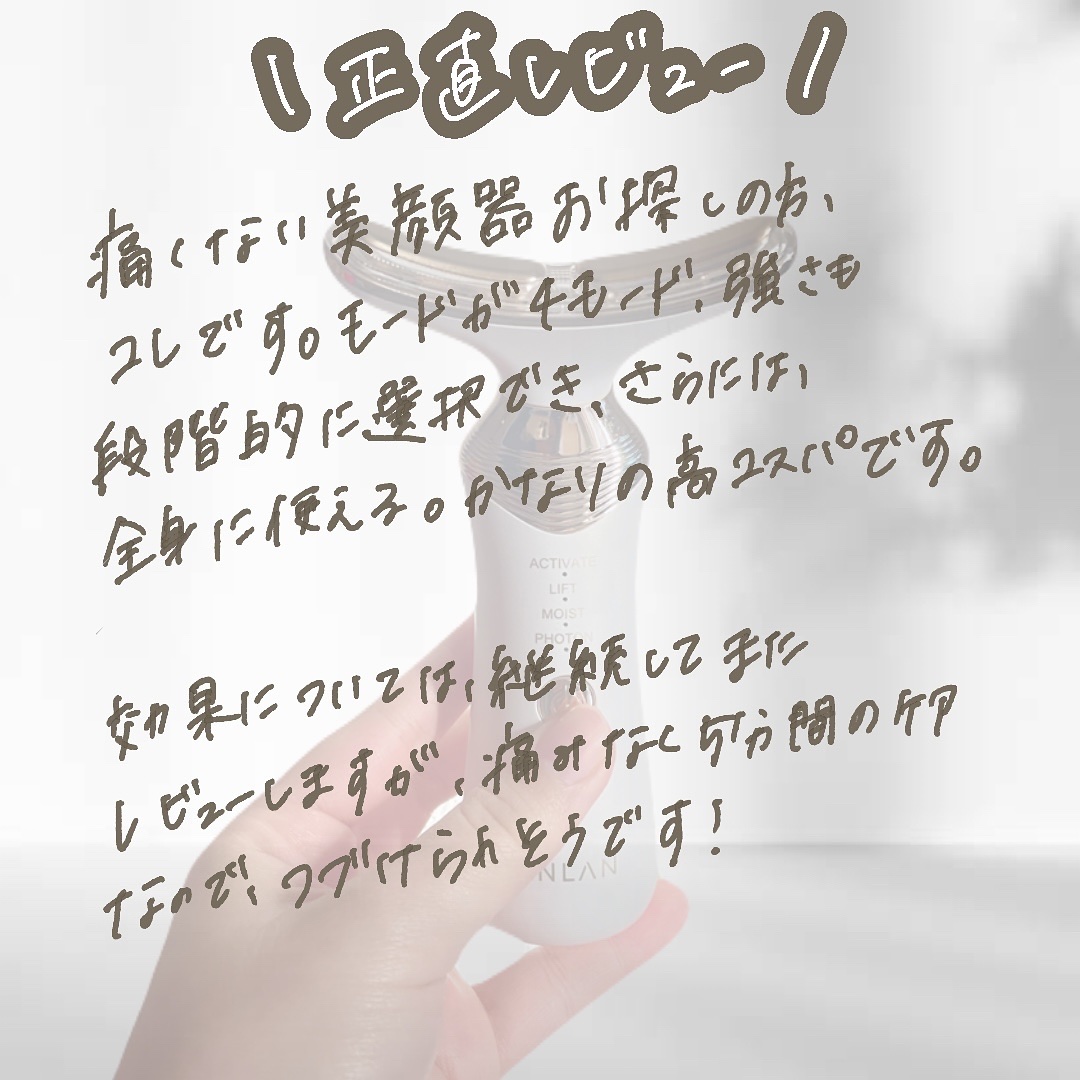 \ 正直レビュー /
痛くない美顔器お探しの方、
コレです。モードが4モード、強さも
段階的に選択でき、さらには、
全身に使える。かなりの高コスパです。
ACTIVATE
LIFT
MOIST
PHOTON
効果については、継続してまた
レビューしますが、痛みなく5分間のケア
なので、つづけられそうです！
NLAN